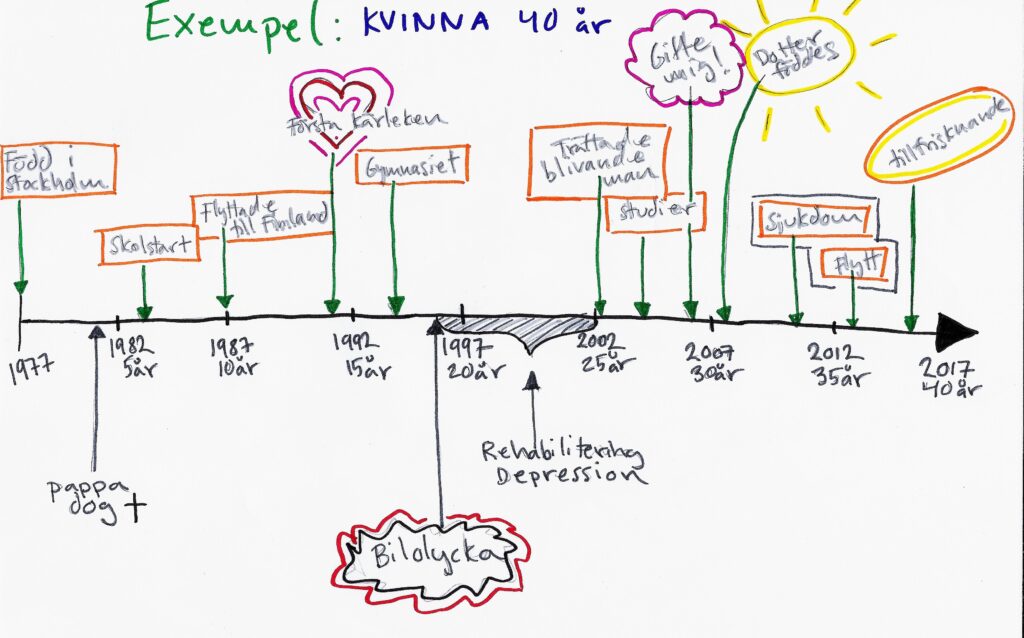 Exempel: KVINNA 40 år
Gifte
mig!
Dotter
föddes
Första kärleken
tillfrisknande
Född i
stockholm
Gymnasiet
Träffade
blivande
man
Flyttade
till Finland
studier
Skolstart
Sjukdom
Flytt
1977
1982
5år
1987
10år
1992
15år
1997
20år
2002
25år
2007
30år
2012
35år
2017
40år
pappa
dog †
Rehabilitering
Depression
Bilolycka